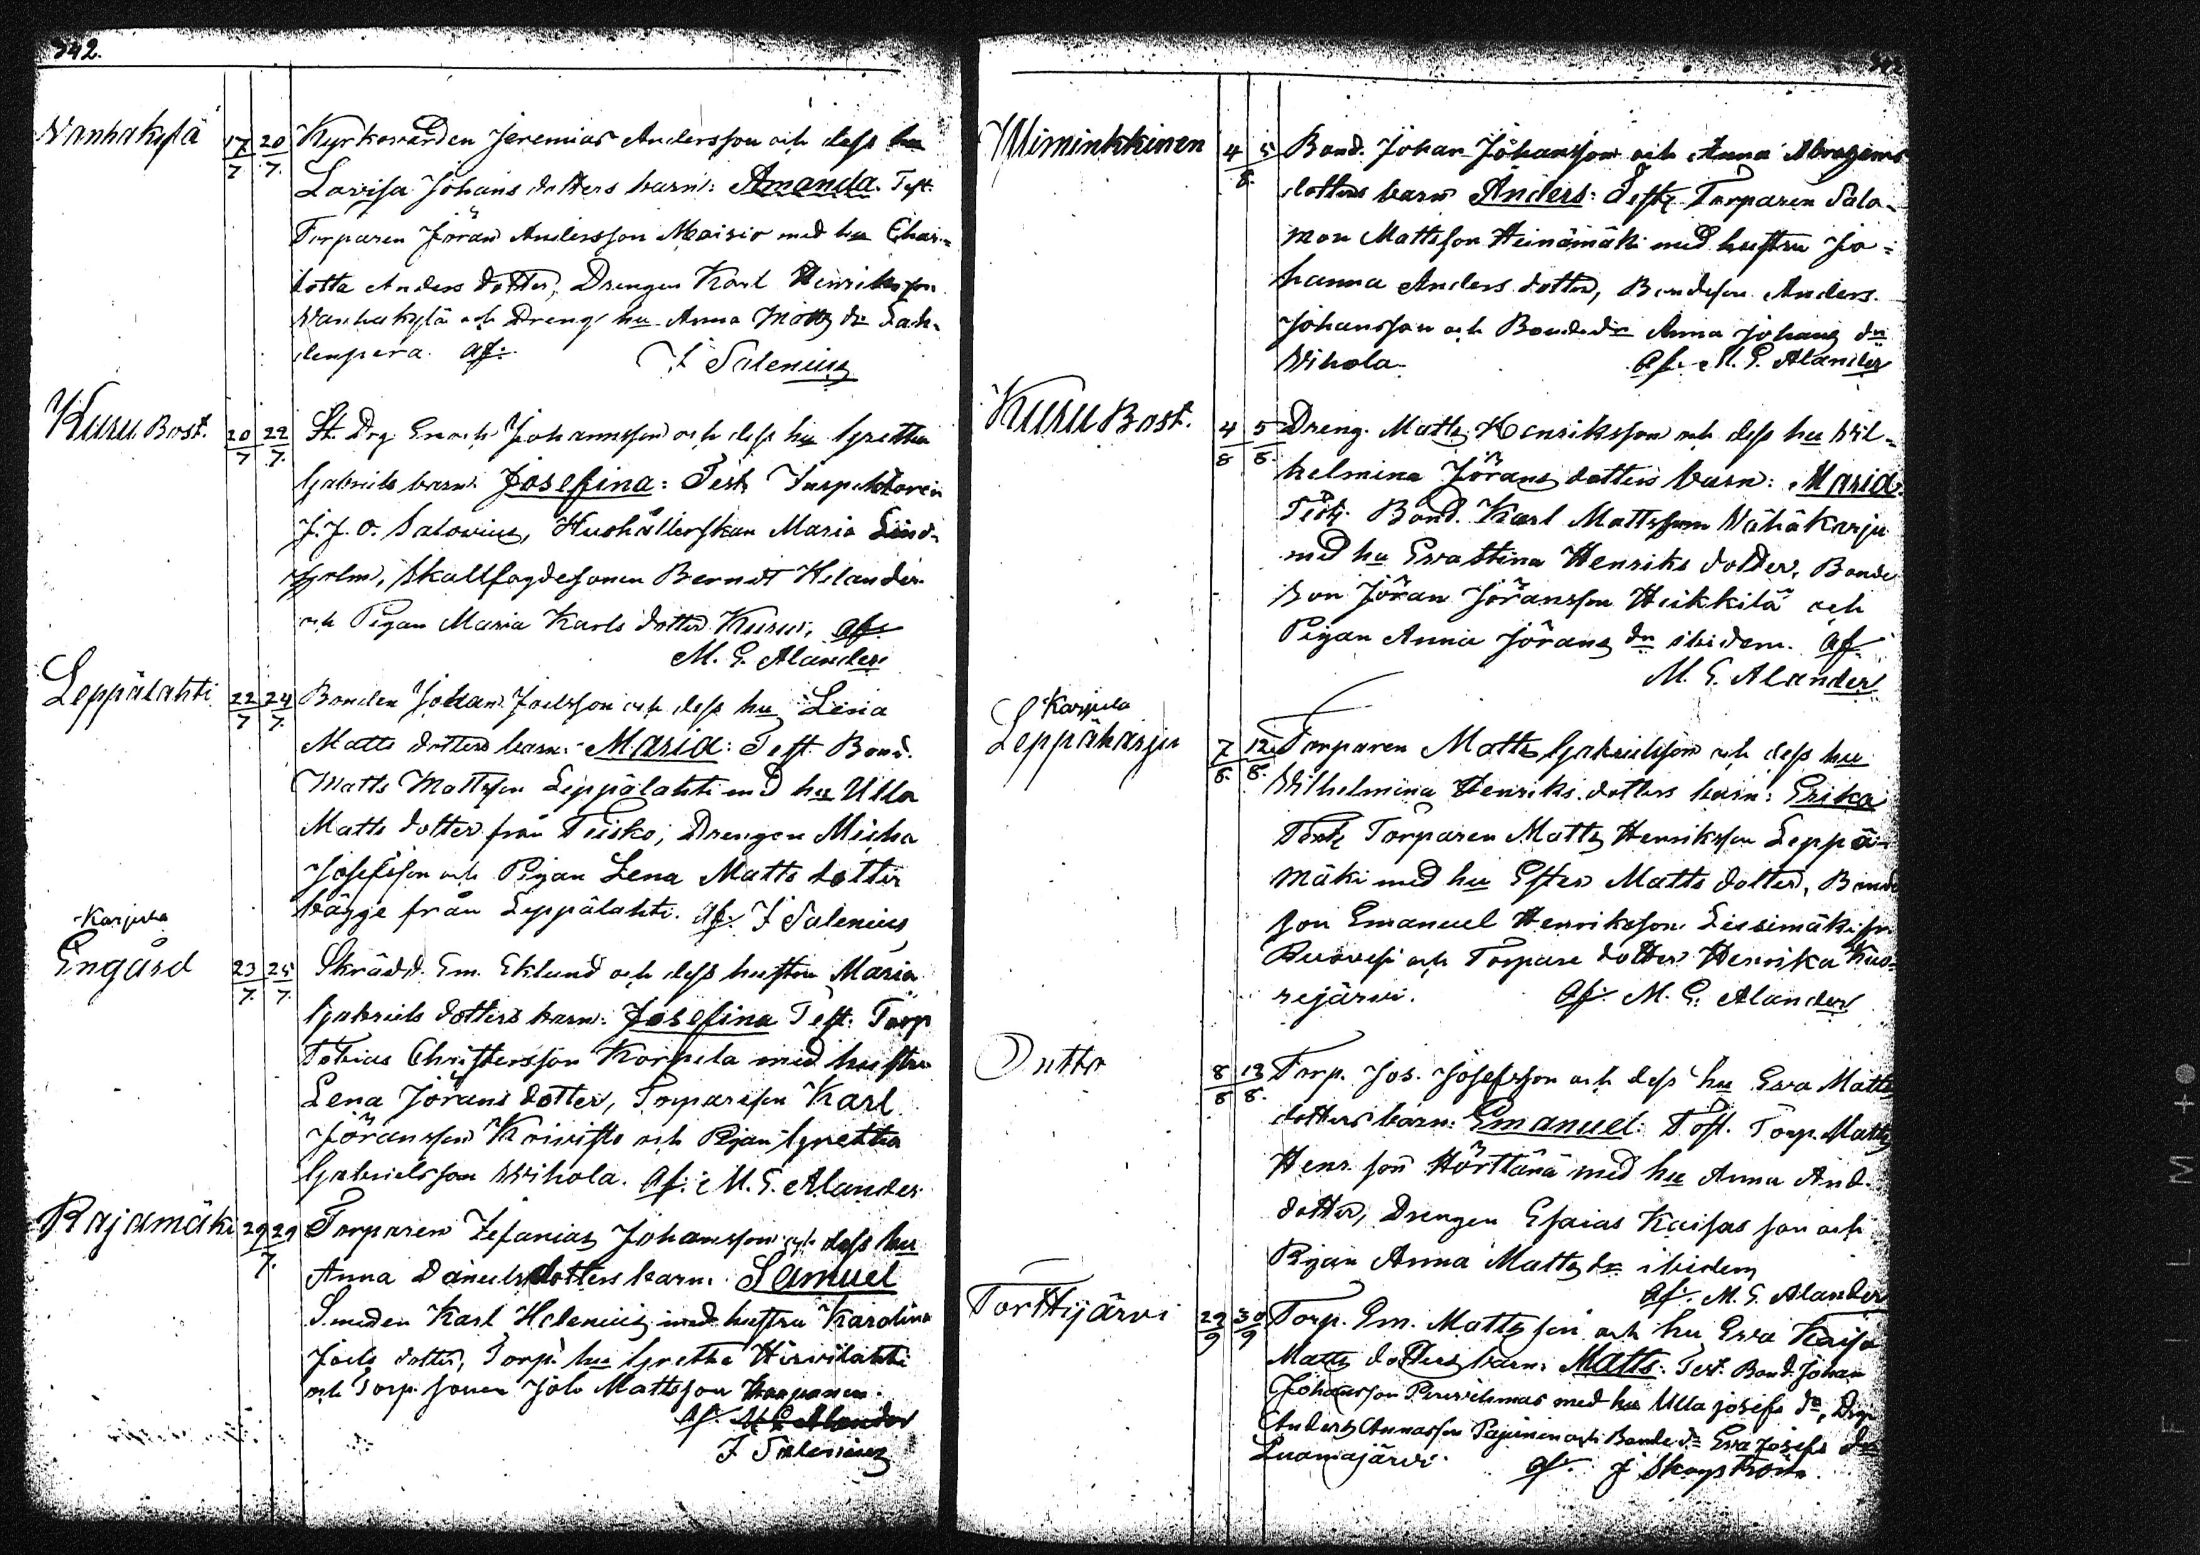 342.
Wanhakylä 17/7 20/7 Kyrkovärden Jeremias Andersson och dess hu
Lovisa Johans dotters barn: Amanda. Test.
Torparen Jöran Andersson Maisio med hu Char=
lotta Anders dotter, Drengen Karl Henriksson
Wanhakylä och Dreng hu Anna Matts dr Lah-
denpera. af. J Salenius
Kuru Bost. 20/7 22/7 St. Drg Enoch Johansson och dess hu Gretha
Gabriels barn: Josefina: Test Inspektoren
J. J. O. Salovius, Hushållerskan Maria Lind-
holm, Skallfogdesonen Berndt Helander
och Pigan Maria Karls dotter Kuru, af.
M. G. Alander
Leppälahti 22/7 24/7 Bonden Johan Joelsson och dess hu Lena
Matts dotters barn: Maria: Test Bond.
Matts Mattsson Leppälahti med hu Ulla
Matts dotter från Teisko, Drengen Micha
Josefsson och Pigan Lena Matts dotter
bägge från Leppälahti. af. J Salenius
Karjula
Engård 23/7 25/7 Skrädd. Em. Eklund och dess hustru Maria
Gabriels dotters barn: Josefina Test. Torp
Tobias Christersson Korpela med hustru
Lena Jörans dotter, Torpareson Karl
Jöransson Koivisto och Pigan Gretha
Gabrielsson Wihola. af. M. G. Alander
Rajamäki 29 29/7 Torparen Zefanias Johansson och dess hu
Anna Daniels dotters barn. Samuel
Smeden Karl Helenius med hustru Karolina
Joels dotter, Torp. hu Gretha Hirvilahti
och Torp. sonen Joh Mattsson Haapanen.
af. M G Alander
J Salenius
Miminkkinen 4/8 5 Bond. Johan Johansson och Anna Abrahams
dotters barn Anders: Test Torparen Salo-
mon Mattsson Heinämäki med hustru Jo=
hanna Anders dotter, Bondeson Anders
Johansson och Bonde dr Anna Johans dr
Wihola. af. M. G. Alander
Kuru Bost. 4/8 5/8 Dreng. Matts Henriksson och dess hu Wil=
helmina Jörans dotters barn: Maria.
Test. Bond. Karl Mattsson Wähäkarju
med hu Eva Stina Henriks dotter, Bonde
son Jöran Jöransson Heikkilä och
Pigan Anna Jörans dr ibidem. af.
M. G. Alander
Karjula
Leppäkarju 7/8 12/8 Torparen Matts Gabrielsson och dess hu
Wilhelmina Henriks dotters barn: Erika
Test Torparen Matts Henriksson Leppä-
mäki med hu Ester Matts dotter, Bonde
son Emanuel Henriksson Lissimäki fr
Ruovesi och Torpare dotter Henrika Kuo-
rejärvi. af. M. G. Alander
Outto 8/8 13/8 Torp. Jos. Josefsson och dess hu Eva Matts
dotters barn: Emanuel: Test. Torp. Matts
Henr. son Hörttänä med hu Anna And.
dotter, Drengen Esaias Kaisas son och
Pigan Anna Matts dr ibidem
af. M. G. Alander
Torttijärvi 29/9 30/9 Torp. Em. Matts son och hu Eva Kaisa
Matts dotters barn: Matts: Test. Bond. Johan
Johansson med hu Ulla Josefs dr, Drg
Anders Annasson Pajunen och Bonde dr Eva Josefs dr
Luomajärvi. af. J Skogström.
FILM